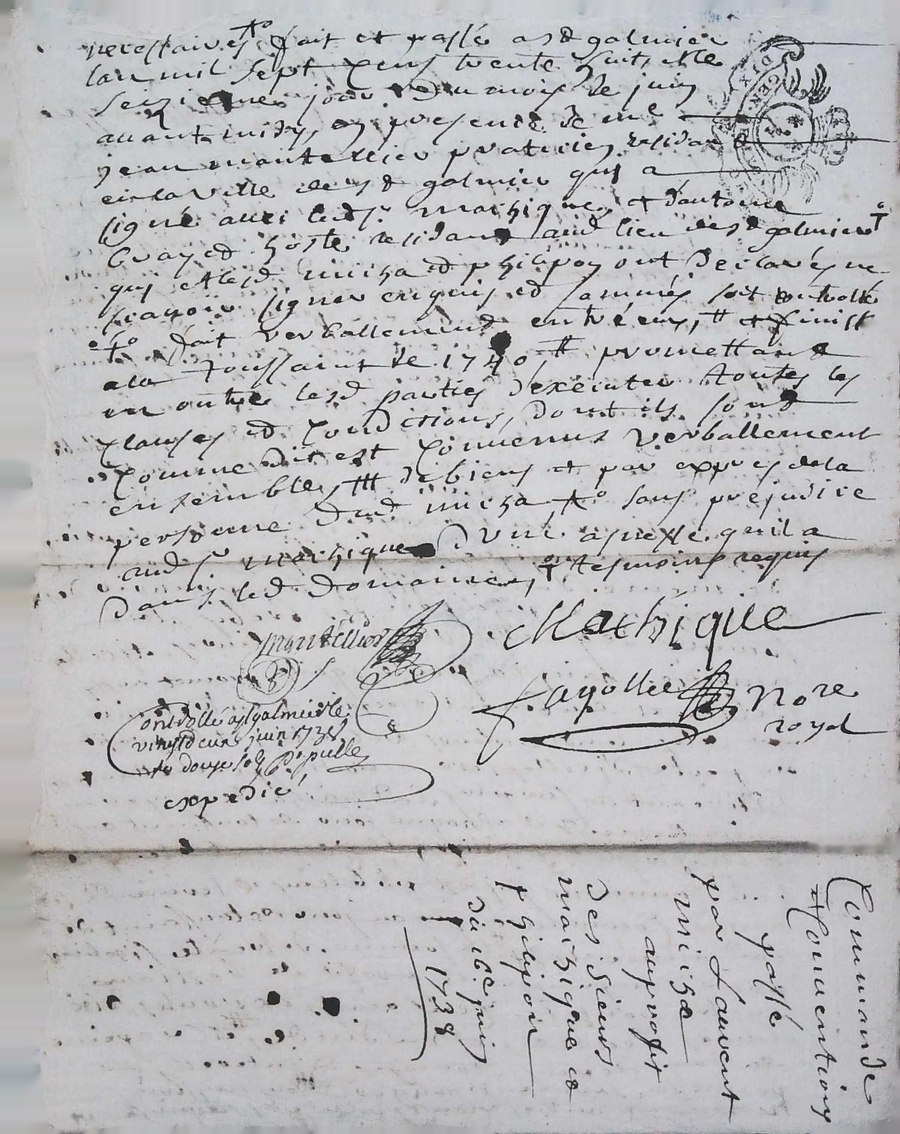 necessaires, fait et passé a st galmier
lan mil sept cens trente huit, et le
seizieme jour du mois de juin
avant midy, en presence de me
jean montellier praticien residant
en la ville de st galmier qui a
signé avec led sr mathique, et d'antoine
hoste residant aud lieu de st galmier
qui et led micha et philipon ont declarés ne
scavoir signer enquis et sommés soit controllé
fait verballement entre eux, et finist
a la Toussaint de 1740 promettant
en outre lesd parties d'exécuter toutes les
clauses et conditions, dont ils sont
comme dit est convenus verballement
ensemble, de biens et par exprès de la
personne dud micha sans prejudice
aud sr mathique d'une qu'il a
dans led domaine, tesmoins requis
Montellier
Mathique
fayolle Nore
royal
Controllé a st galmier le
vingt deux juin 1738
douze sols
expedié
DIX
GENER
Commande
et Convention
passé
par Laurent
micha
au profit
des sieurs
mathique et
philipon
du 16e juin
1738